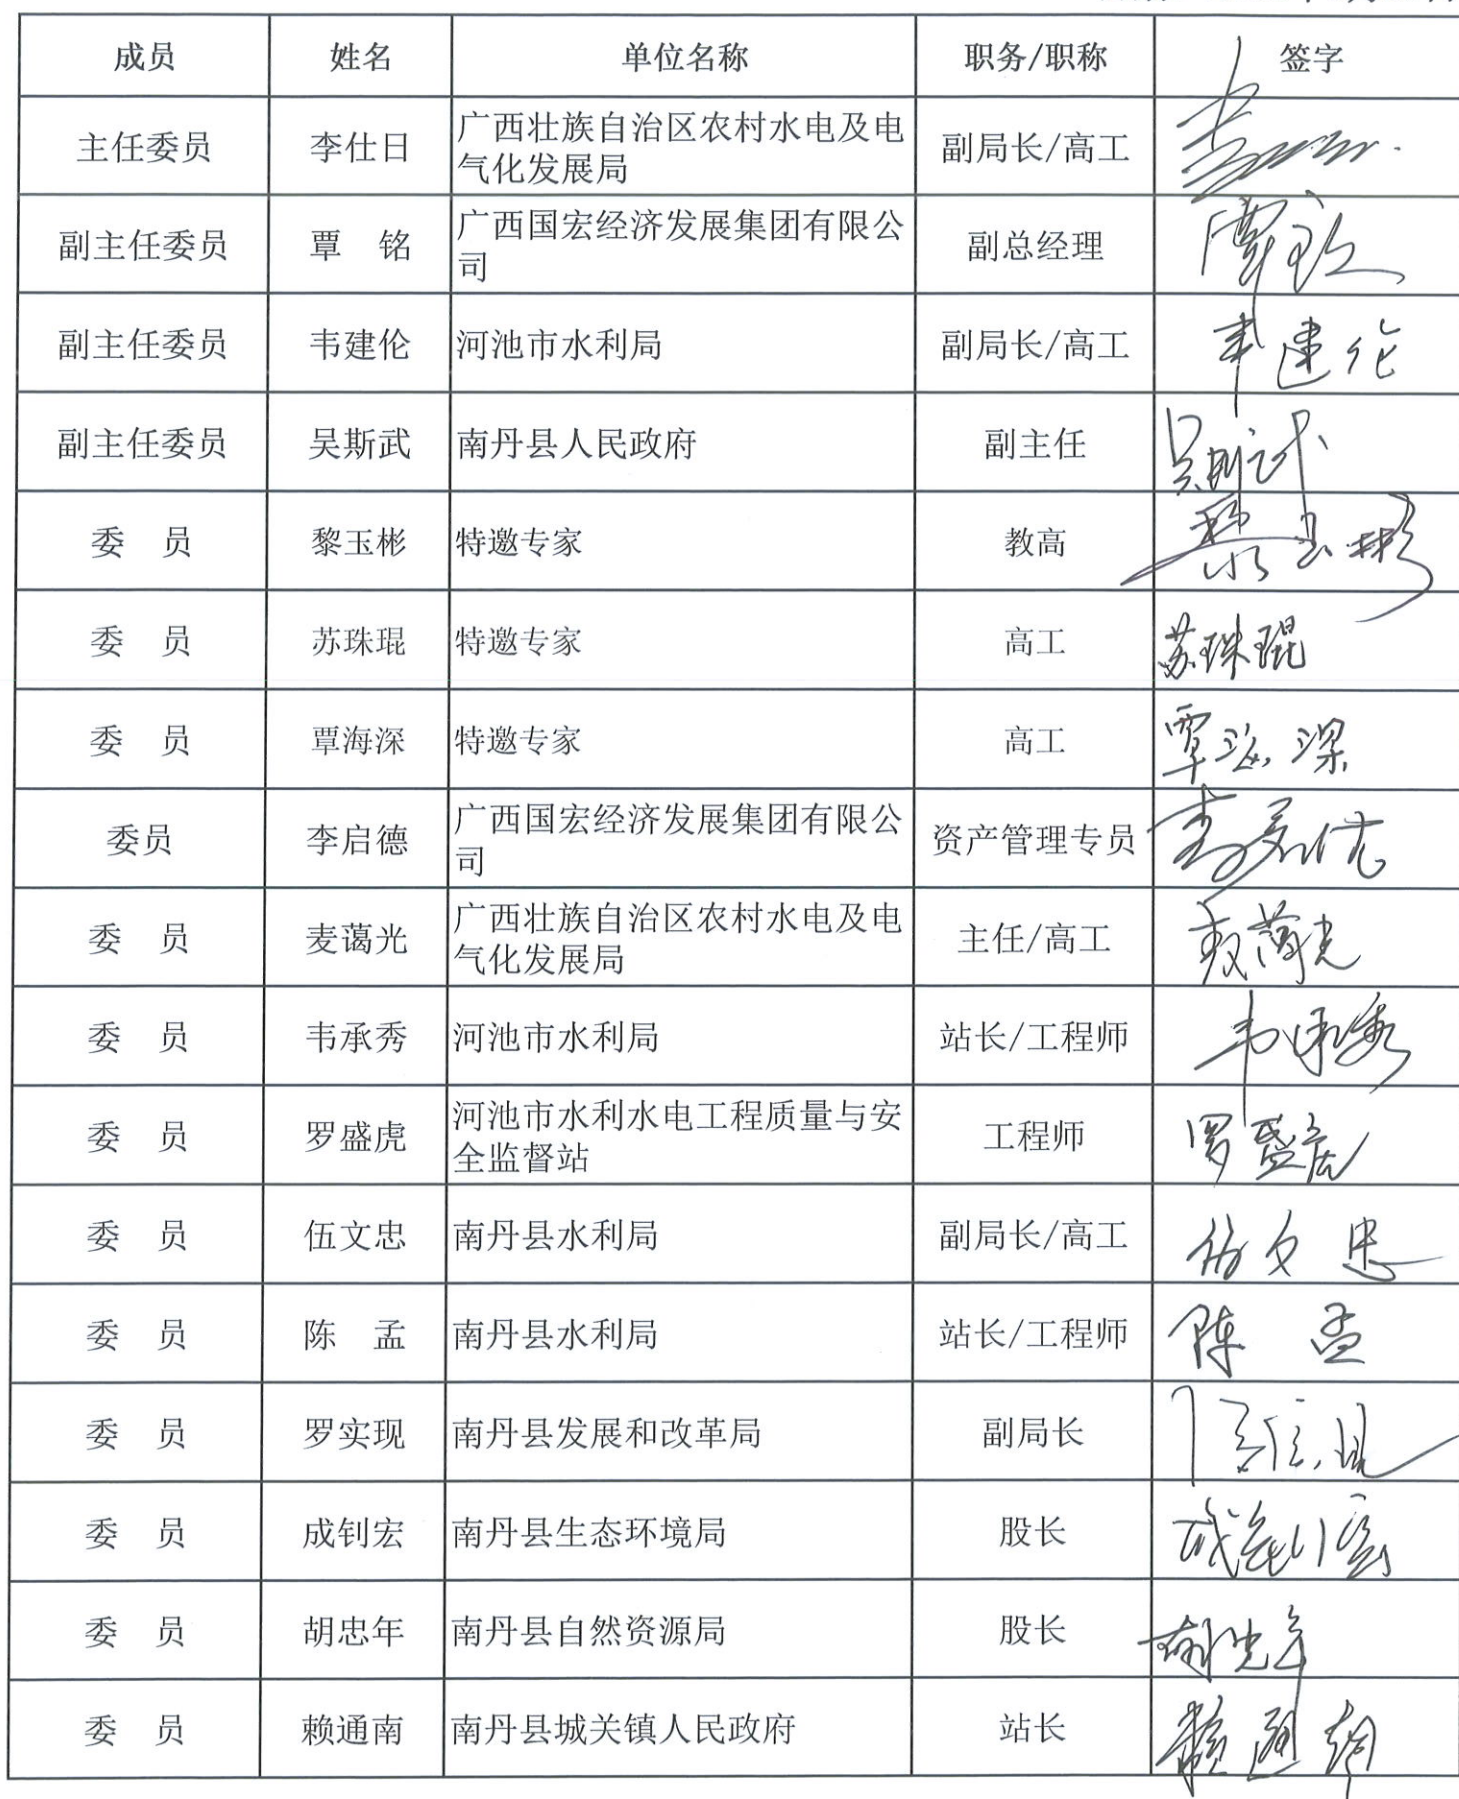 成员 姓名 单位名称 职务/职称 签字
主任委员 李仕日 广西壮族自治区农村水电及电
气化发展局 副局长/高工
副主任委员 覃 铭 广西国宏经济发展集团有限公
司 副总经理
副主任委员 韦建伦 河池市水利局 副局长/高工 韦建伦
副主任委员 吴斯武 南丹县人民政府 副主任 吴斯武
委 员 黎玉彬 特邀专家 教高 黎玉彬
委 员 苏珠琨 特邀专家 高工 苏珠琨
委 员 覃海深 特邀专家 高工 覃海深
委员 李启德 广西国宏经济发展集团有限公
司 资产管理专员
委 员 麦蔼光 广西壮族自治区农村水电及电
气化发展局 主任/高工
委 员 韦承秀 河池市水利局 站长/工程师 韦承秀
委 员 罗盛虎 河池市水利水电工程质量与安
全监督站 工程师 罗盛虎
委 员 伍文忠 南丹县水利局 副局长/高工 伍文忠
委 员 陈 孟 南丹县水利局 站长/工程师 陈 孟
委 员 罗实现 南丹县发展和改革局 副局长
委 员 成钊宏 南丹县生态环境局 股长
委 员 胡忠年 南丹县自然资源局 股长 胡忠年
委 员 赖通南 南丹县城关镇人民政府 站长 赖通南